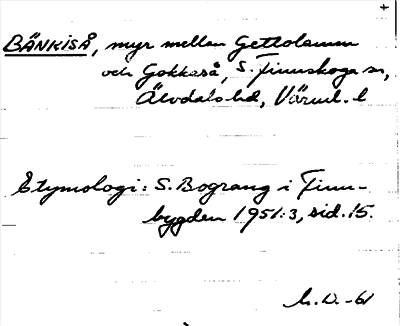 BÄNKISÅ, myr mellan Gettolamm
och Gokkaså, S. Finnskoga sn,
Älvdals hd, Värml. l
Etymologi: S. Bograng i Finn-
bygden 1951:3, sid. 15.
-61